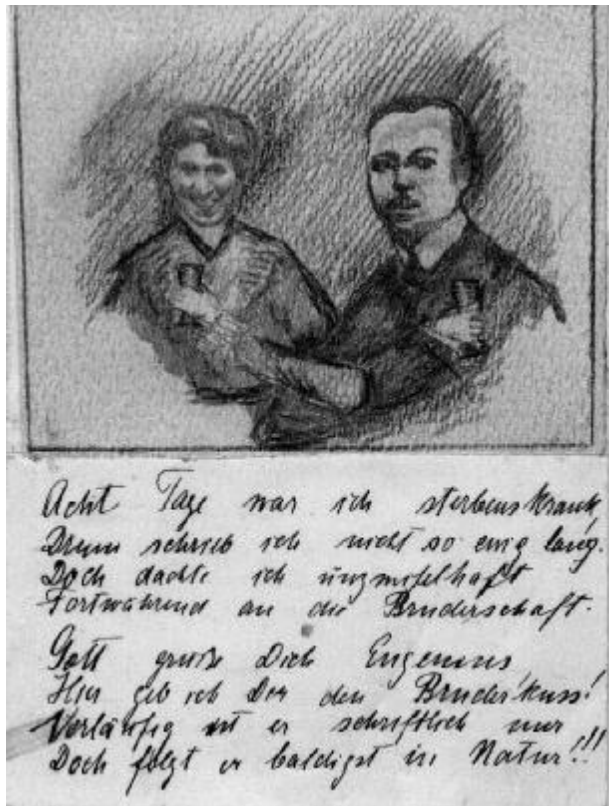 Acht Tage war ich sterbenskrank,
Drum schrieb ich nicht so ewig lang.
Doch dachte ich unzweifelhaft
Fortwährend an die Bruderschaft.
Gott grüße Dich Eugenius,
Hier geb ich Dir den Bruderkuss!
Vorläufig ist er schriftlich nur
Doch folgt er baldigst in Natur!!!